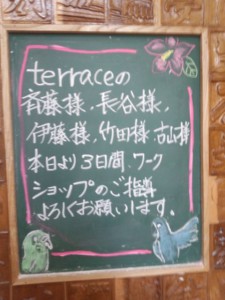 terraceの
斉藤様、長谷様、
伊藤様、竹田様、古山様
本日より3日間、ワーク
ショップのご指導
よろしくお願いします。